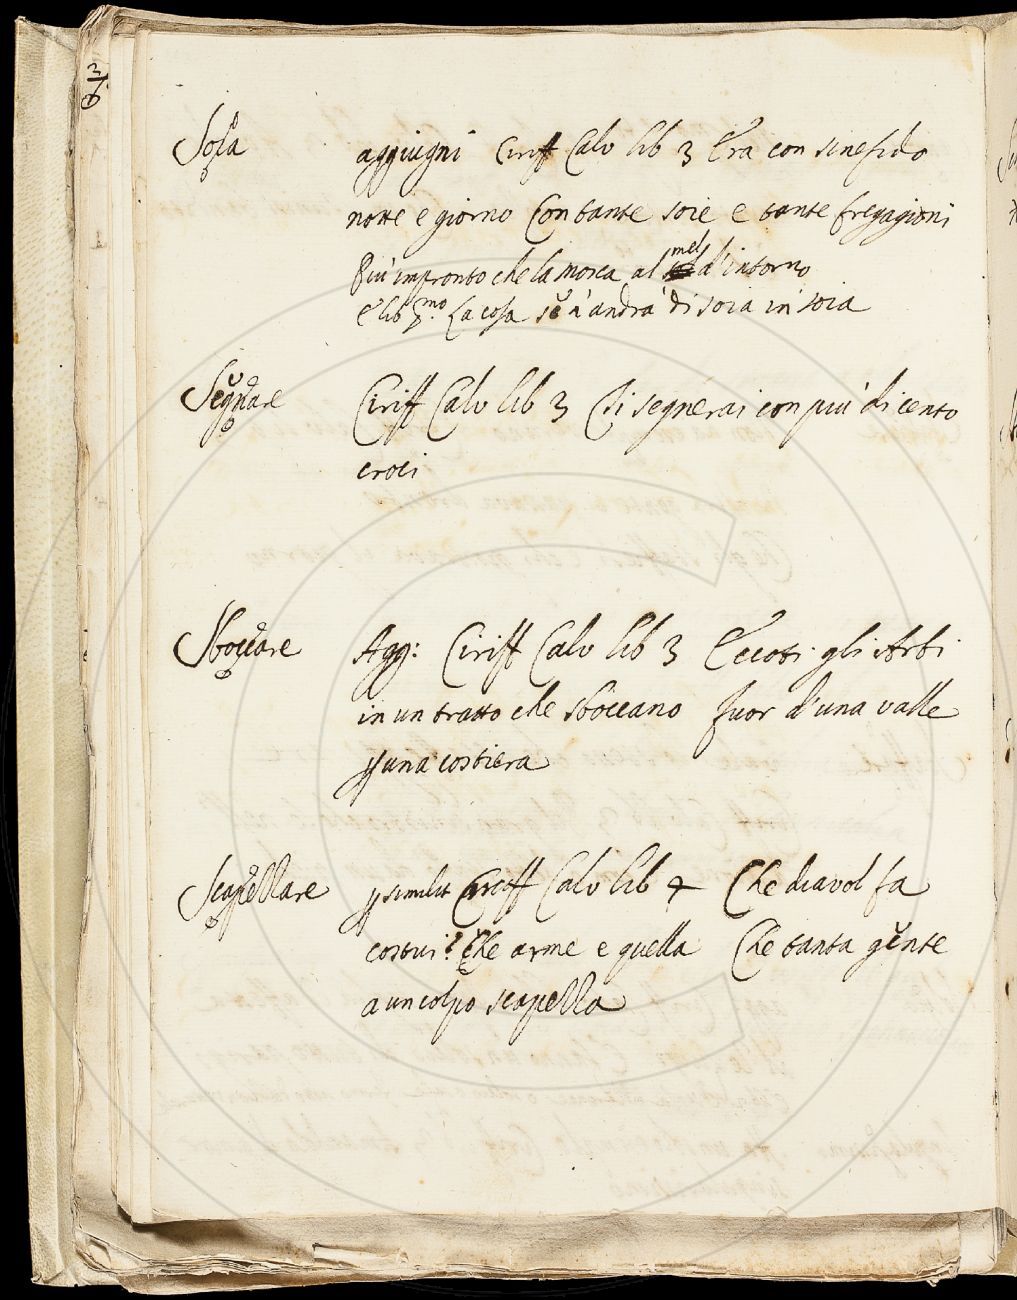 Soia aggiugni Ciriff Calv lib 3 Era con sine fido
notte e giorno Con tante soie e tante fregagioni
Più impronto che la mosca al mel d'intorno
E lib 7.mo La cosa se n'andrà di soia in soia
Segnare Ciriff Calv lib 3 Ti segnerai con più di cento
croci
Sboccare Agg: Ciriff Calv lib 3 Eccoti gli Arbi
in un tratto che sboccano fuor d'una valle
p una costiera
Scapellare p similit Ciriff Calv lib 4 Che diavol fa
costui? Che arme e quella Che tanta gente
a un colpo scapella